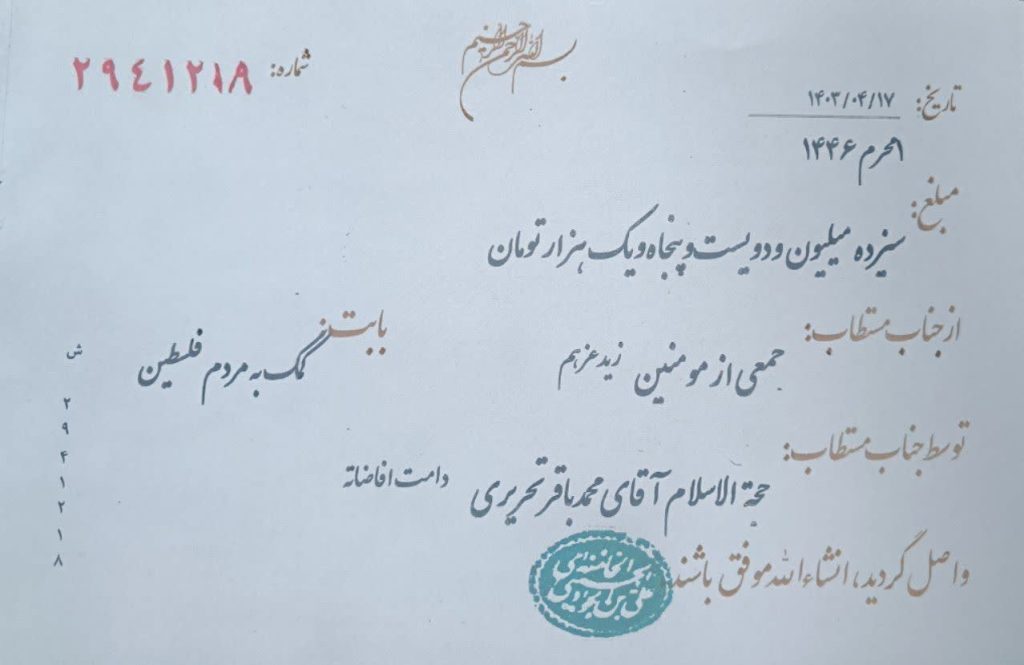 بسم الله الرحمن الرحیم
شماره: ۲۹۴۱۲۱۸
تاریخ: ۱۴۰۳/۰۴/۱۷
۱محرم ۱۴۴۶
مبلغ:
سیزده میلیون و دویست و پنجاه و یک هزار تومان
از جناب مستطاب:
جمعی از مومنین زید عزهم
بابت:
کمک به مردم فلسطین
توسط جناب مستطاب:
حجة الاسلام آقای محمدباقر تحریری دامت افاضاته
واصل گردید، انشاءالله موفق باشند
ش
۲
۹
۴
۱
۲
۱
۸